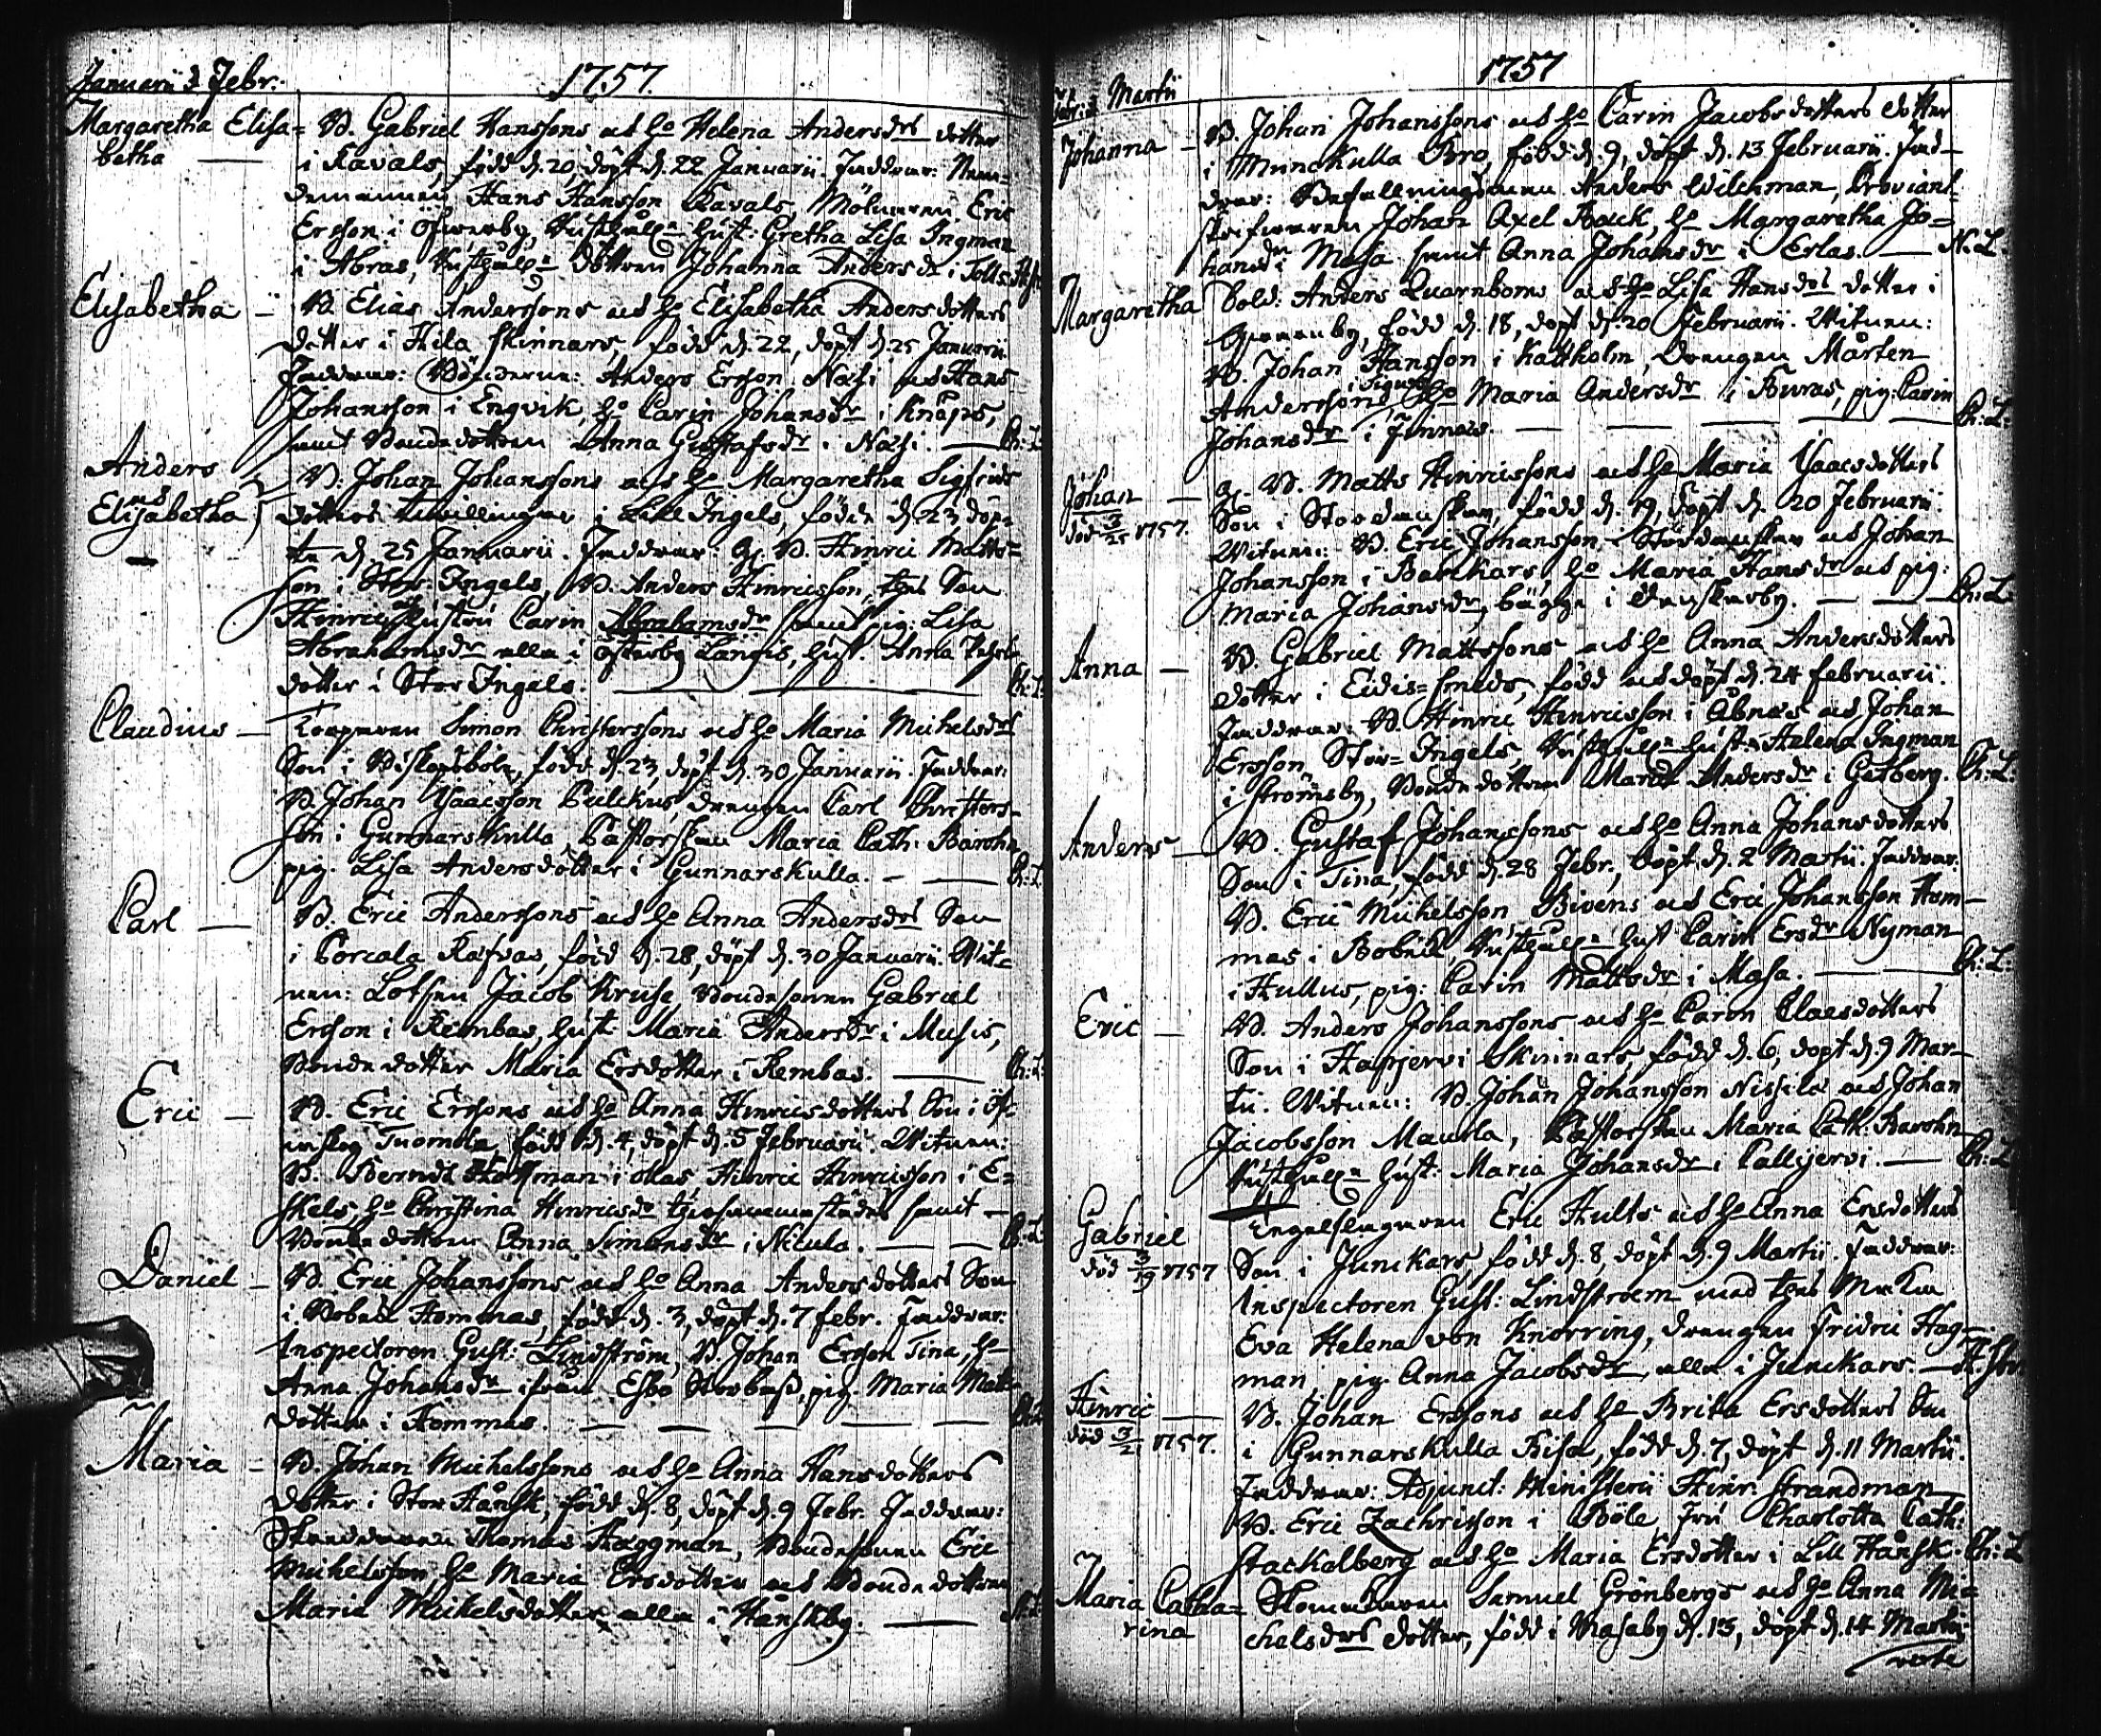 Januarii & Febr. 1757.
Margaretha Elisa=
betha —
B. Gabriel Hanssons och h:o Helena Andersdrs dotter
i Ravals, född d. 20, döpt d. 22 Januarii. Faddrar: Nem=
demannen Hans Hansson Ravals, Mölnaren Eric
Ersson i Öfwerby, hust: Gretha Lisa Ingman
i Abras, dottren Johanna Andersdr i Tolls.
Elisabetha —
B. Elias Anderssons och h:o Elisabetha Andersdotters
dotter i Hila Skinnars, född d. 22, döpt d. 25 Januarii.
Faddrar: Bönderne: Anders Ersson Näsi och Hans
Johansson i Engvik, h:o Carin Johansdr i Knaps,
samt Bondedottren Anna Gustafsdr i Näsi. — Ch: L:
Anders
och
Elisabetha
B. Johan Johanssons och h:o Margaretha Sigfrids
dotters twillingar i Lill Ingels, födde d. 23 döp=
te d. 25 Januarii. Faddrar: B. Hinric Matts=
son i Stor Ingels, B. Anders Hinricsson, thes Son
Hinric, hustru Carin Abrahamsdr samt pig: Lisa
Abrahamsdr alla i Österby Långis, hust. Anna
dotter i Stor Ingels. — Ch: L:
Claudius —
Torparen Simon Christerssons och h:o Maria Michelsdrs
Son i Biskopsböle, född d. 23, döpt d. 30 Januarii. Faddrar:
B. Johan Isaacsson drengen Carl Christers=
son i Gunnarskulla, Pastorskan Maria Cath: Barohn
pig. Lisa Andersdotter i Gunnarskulla. — Ch: L.
Carl —
B. Eric Anderssons och h:o Anna Andersdrs Son
i Porcala Räfvas, född d. 28, döpt d. 30 Januarii. Wit=
nen: Lotsen Jacob Kruse, Bondesonen Gabriel
Ersson i Rembas, hust: Maria Andersdr i Musis,
Bondedotter Maria Ersdotter i Rembas. — Ch: L:
Eric —
B. Eric Erssons och h:o Anna Hinricsdotters Son i Öf=
Tuomola, född d. 4, döpt d. 5 Februarii. Witnen:
B. Berndt Hoffman i Hinric Hinricsson i E=
skels h:o Christina Hinricsdr samt
Bondedottren Anna Simonsdr i Nicula. — Ch: L:
Daniel —
B. Eric Johanssons och h:o Anna Andersdotters Son
i Bobäck Hommas, född d. 3, döpt d. 7 febr. Faddrar:
Inspectoren Gust: Lindström, B. Johan Ersson Tina, h:o
Anna Johansdr ifrån Esbo pig. Maria Matts
dotter i Hommas. —
Maria —
B. Johan Michelssons och h:o Anna Hansdotters
dotter i Stor Hånsk, född d. 8, döpt d. 9 Febr. Faddrar:
Skräddaren Thomas Häggman, Bondesonen Eric
Michelsson, h:o Maria Ersdotter och Bondedottren
Maria Michelsdotter alla i Hånskby. —
Febr: & Martii 1757
Johanna —
B. Johan Johanssons och h:o Carin Jacobsdotters dotter
i Munckulla Bro, född d. 9, döpt d. 13 Februarii. Fad=
drar: Befallningsman Anders Wilckman, Proviant=
skrifwaren Johan Axel Bäck, h:o Margaretha Jo=
hansdr i Masa samt Anna Johansdr i Erlas. — N: L.
Margaretha
Sold: Anders Quarnboms och h:o Lisa Hansdrs dotter i
född d. 18, döpt d. 20 Februarii. Witnen:
B. Johan Hansson i Kattholm, Drengen Mårten
i Sigurs
Anderssons h:o Maria Andersdr i Buras, pig: Carin
Johansdr i Finnas. — Ch: L:
Johan —
död 3/25 1757.
B. Matts Hinricssons och h:o Maria Isaacsdotters
Son i Stordansker, född d. 19, döpt d. 20 Februarii.
Witnen: B. Eric Johansson i Stordansker och Johan
Johansson i Backars, h:o Maria Hansdr och pig:
Maria Johansdr, bägge i Danskarby. — Ch: L.
Anna —
B. Gabriel Mattssons och h:o Anna Andersdotters
dotter i Eidis=Smeds, född och döpt d. 24 februarii.
Faddrar: B. Hinric Hinricsson i Åbnäs och Johan
Ersson Stor=Ingels, hust: Helena Ingman
i Strömsby, Bondedottren Maria Andersdr i Getberg. Ch: L:
Anders —
B. Gustaf Johanssons och h:o Anna Johansdotters
Son i Tina, född d. 28 Febr., döpt d. 2 Martii. Faddrar:
B. Eric Michelsson Bivens och Eric Johansson Hom=
mas i Bobäck, hust Carin Ersdr Nyman
i Hullus, pig: Carin Mattsdr i Masa. — Ch: L:
Eric —
B. Anders Johanssons och h:o Carin Claesdotters
Son i Hapjervi Skinnars, född d. 6, döpt d. 9 Mar=
tii. Witnen: B. Johan Johansson Nissila och Johan
Jacobsson Maurla, Pastorskan Maria Cath: Barohn
hust: Maria Johansdr i Callijervi. — Ch: L
Gabriel
död 3/19 1757
Tegelslagaren Eric Hults och h:o Anna Ersdotters
Son i Junckars, född d. 8, döpt d. 9 Martii. Faddrar:
Inspectoren Gust: Lindstroem med thes Maka
Eva Helena von Knorring, drengen Fridric Hag=
man, pig. Anna Jacobsdr, alla i Junckars. —
Hinric —
död 3/21 1757.
B. Johan Erssons och h:o Brita Ersdotters Son
i Gunnarskulla Risa, född d. 7, döpt d. 11 Martii.
Faddrar: Adjunct: Ministerii Hinr: Strandman
B. Eric Zachrisson i Böle, Fru Charlotta Cath:
Stackalberg och h:o Maria Ersdotter i Lill Hånsk. Ch: L
Maria Catha=
rina
Samuel Grönbergs och h:o Anna Mi=
chelsdrs dotter, född i Masaby d. 13, döpt d. 14 Martii